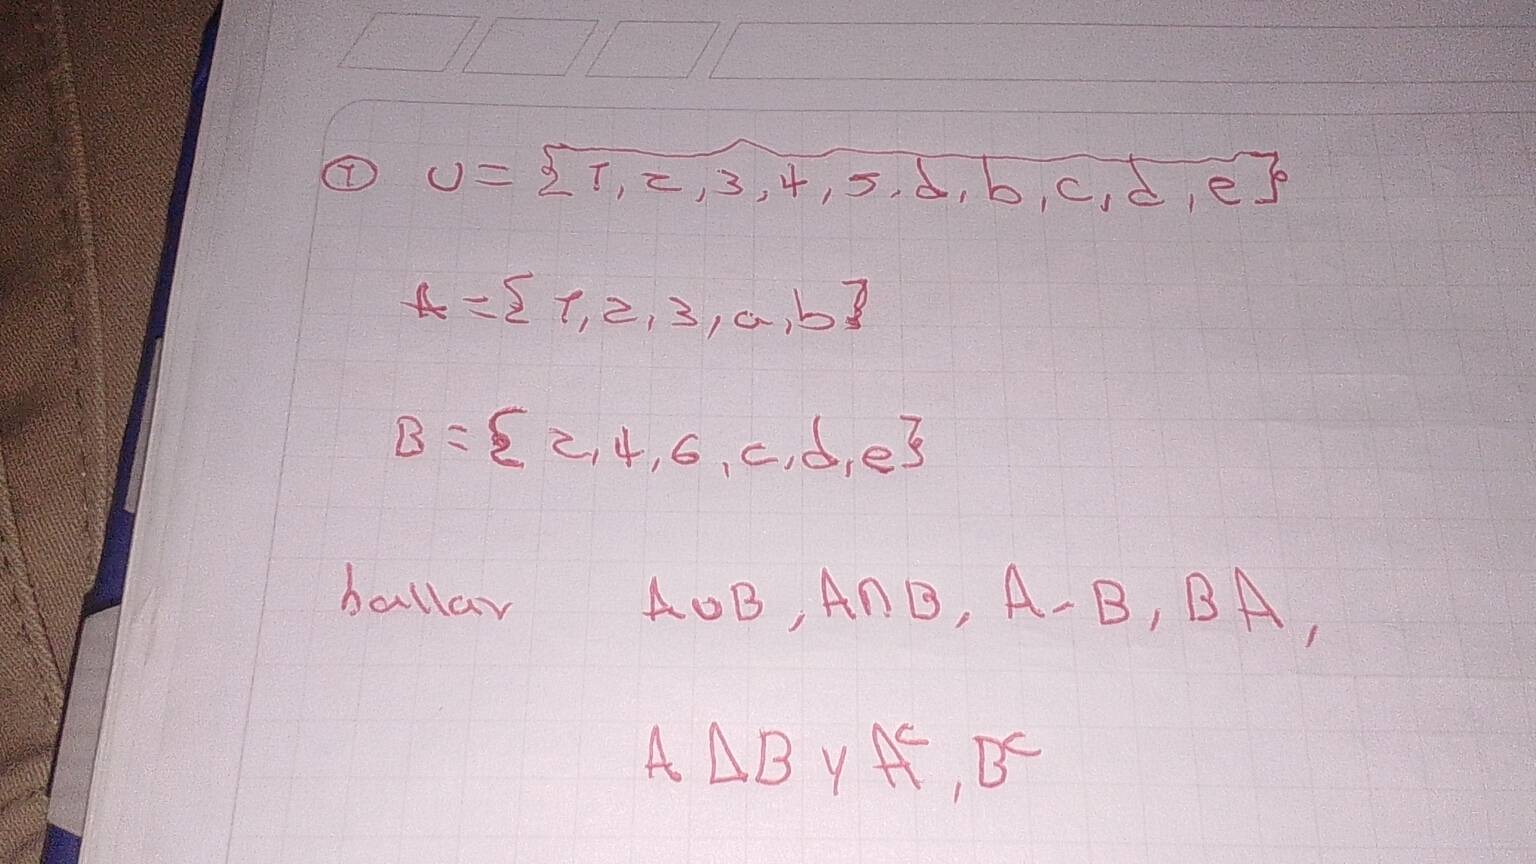 ① U = {1, 2, 3, 4, 5, d, b, c, d, e}
A = {1, 2, 3, a, b}
B = {2, 4, 6, c, d, e}
hallar A∪B, A∩B, A-B, BA,
A Δ B y Aᶜ, Bᶜ